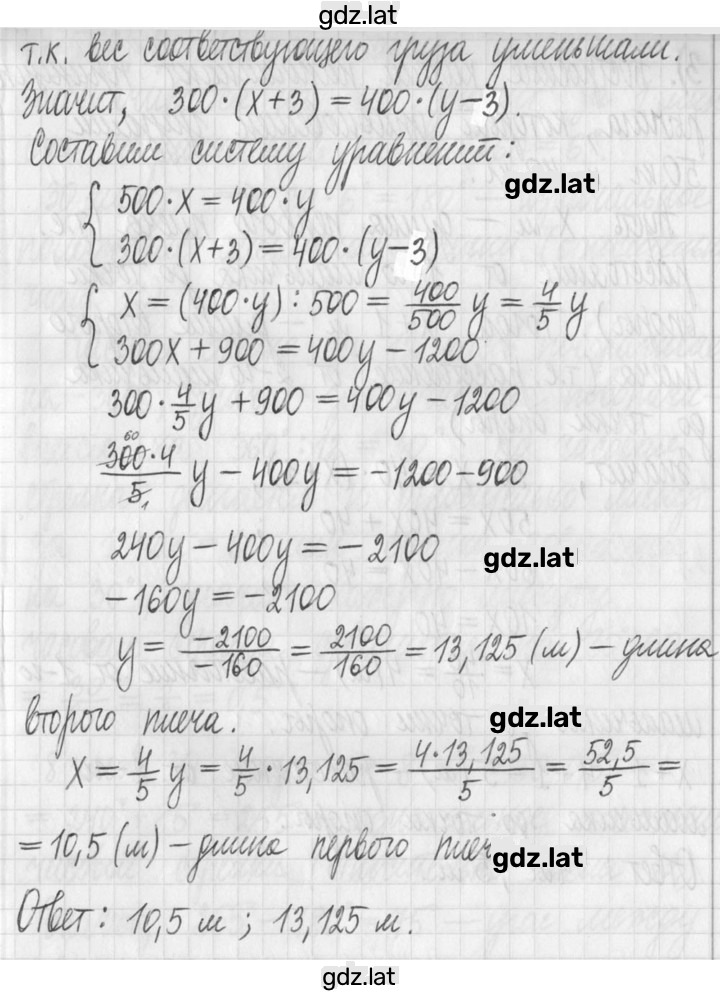 gdz.lat
т.к. вес соответствующего груза уменьшали.
Значит, 300·(x+3) = 400·(y−3).
Составим систему уравнений:
gdz.lat
{ 500·x = 400·y
300·(x+3) = 400·(y−3)
{ x = (400·y) : 500 = 400/500 y = 4/5 y
300x + 900 = 400y − 1200
300 · 4/5 y + 900 = 400y − 1200
60
300·4/5 1 y − 400y = −1200−900
240y − 400y = −2100
gdz.lat
−160y = −2100
y = −2100/−160 = 2100/160 = 13,125 (м) − длина
второго плеча.
gdz.lat
x = 4/5 y = 4/5 · 13,125 = 4·13,125/5 = 52,5/5 =
= 10,5 (м) − длина первого плеч
gdz.lat
Ответ: 10,5 м ; 13,125 м.
gdz.lat